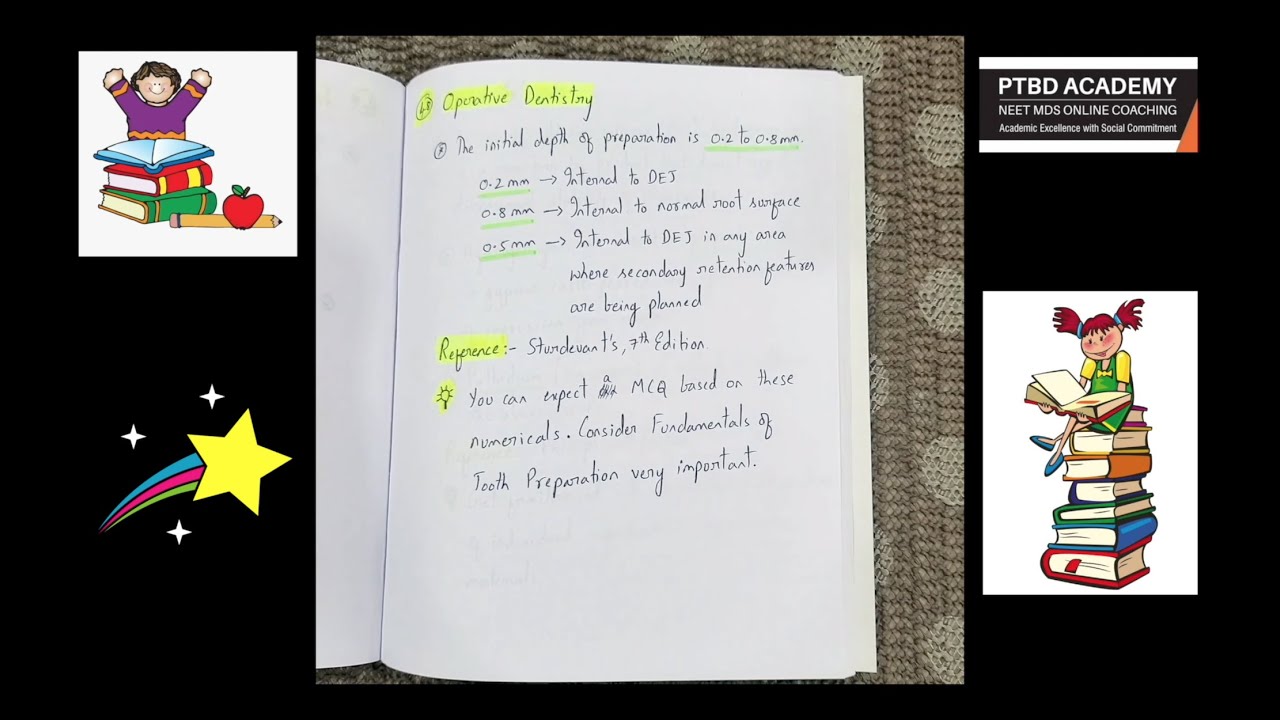 48 Operative Dentistry
The initial depth of preparation is 0.2 to 0.8mm.
0.2mm → Internal to DEJ
0.8mm → Internal to normal root surface
0.5mm → Internal to DEJ in any area
where secondary retention features
are being planned
Reference:- Sturdevant's, 7th Edition.
You can expect a MCQ based on these
numericals. Consider Fundamentals of
Tooth Preparation very important.
PTBD ACADEMY
NEET MDS ONLINE COACHING
Academic Excellence with Social Commitment